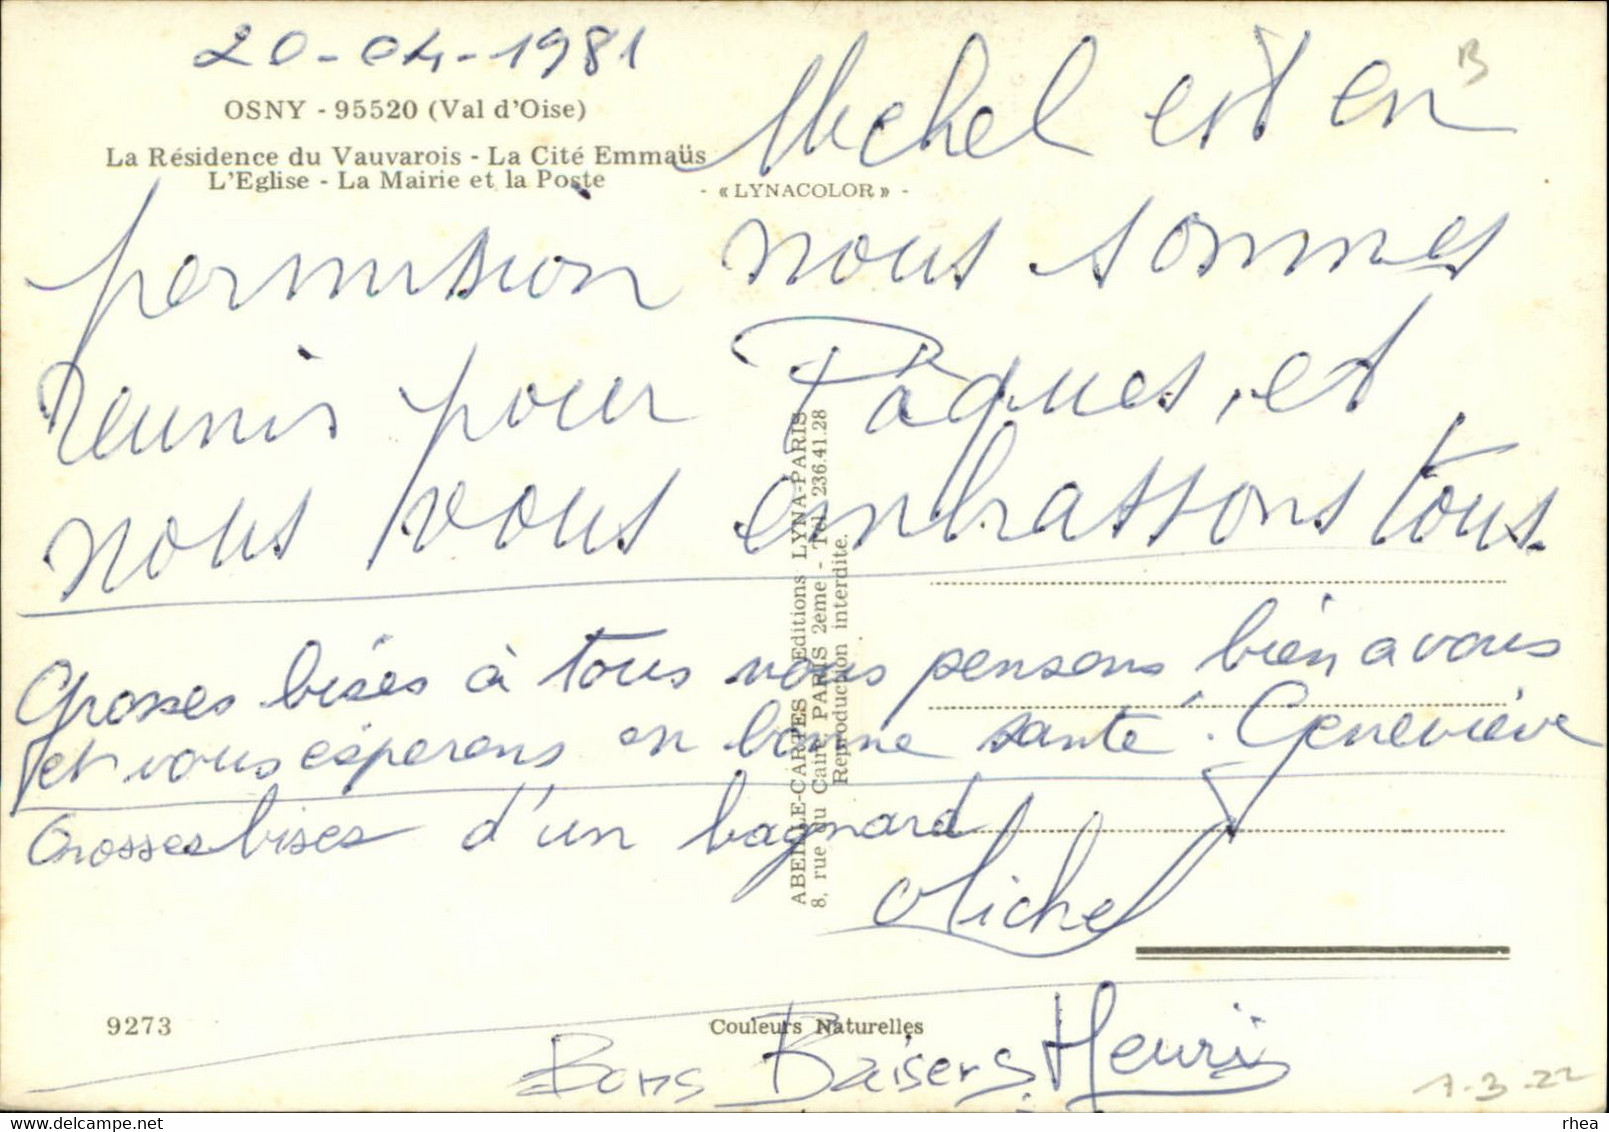 20-04-1981
B
OSNY - 95520 (Val d'Oise)
La Résidence du Vauvarois - La Cité Emmaüs
L'Eglise - La Mairie et la Poste
- « LYNACOLOR » -
Michel est en
permission nous sommes
reunis pour Pâques, et
nous vous embrassons tous.
Grosses bises à tous nous pensons bien a vous
et vous espérons en bonne santé. Geneviève
Grosses bises d'un bagnard
Michel
Bons Baisers Henri
ABEILLE-CARTES Editions LYNA-PARIS
8, rue du Caire PARIS 2eme - Tél. 236.41.28
Reproduction interdite.
9273
Couleurs Naturelles
7-3-22
delcampe.net
rhea